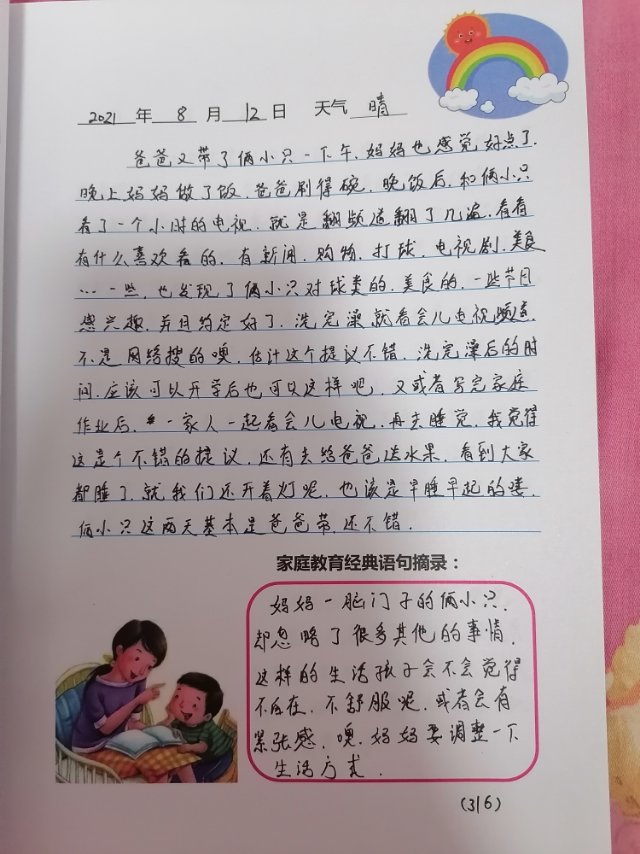 2021 年 8 月 12 日 天气 晴
爸爸又带了俩小只一下午，妈妈也感觉好点了，
晚上妈妈做了饭，爸爸刷得碗，晚饭后，和俩小只
看了一个小时的电视，就是翻频道翻了几遍，看看
有什么喜欢看的，有新闻，购物，打球，电视剧，美食
……一些，也发现了俩小只对球类的，美食的，一些节目
感兴趣，并且约定好了，洗完澡就看会儿电视频道，
不是网络搜的噢，估计这个提议不错，洗完澡后的时
间，应该可以开学后也可以这样吧，又或者写完家庭
作业后，一家人一起看会儿电视，再去睡觉，我觉得
这是个不错的提议，还有去给爸爸送水果，看到大家
都睡了，就我们还开着灯呢，也该是早睡早起的喽，
俩小只这两天基本是爸爸带，还不错．
家庭教育经典语句摘录：
妈妈一脑门子的俩小只，
却忽略了很多其他的事情，
这样的生活孩子会不会觉得
不自在，不舒服呢，或者会有
紧张感，噢，妈妈要调整一下
生活方式．
(316)